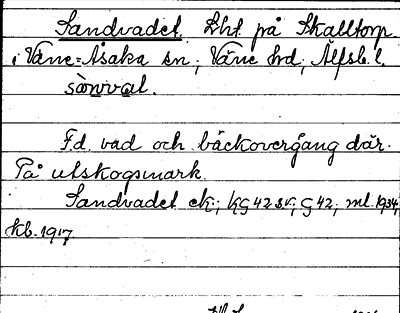 Sandvadet. Lht. på Skalltorp
i Väne-Åsaka sn; Väne hd, Älfsb. l.
sàn̥vat.
F.d. vad och bäckövergång där.
På utskogsmark.
Sandvadet ek; kg 42 sv; G 42; ml. 1934,
kb. 1917.